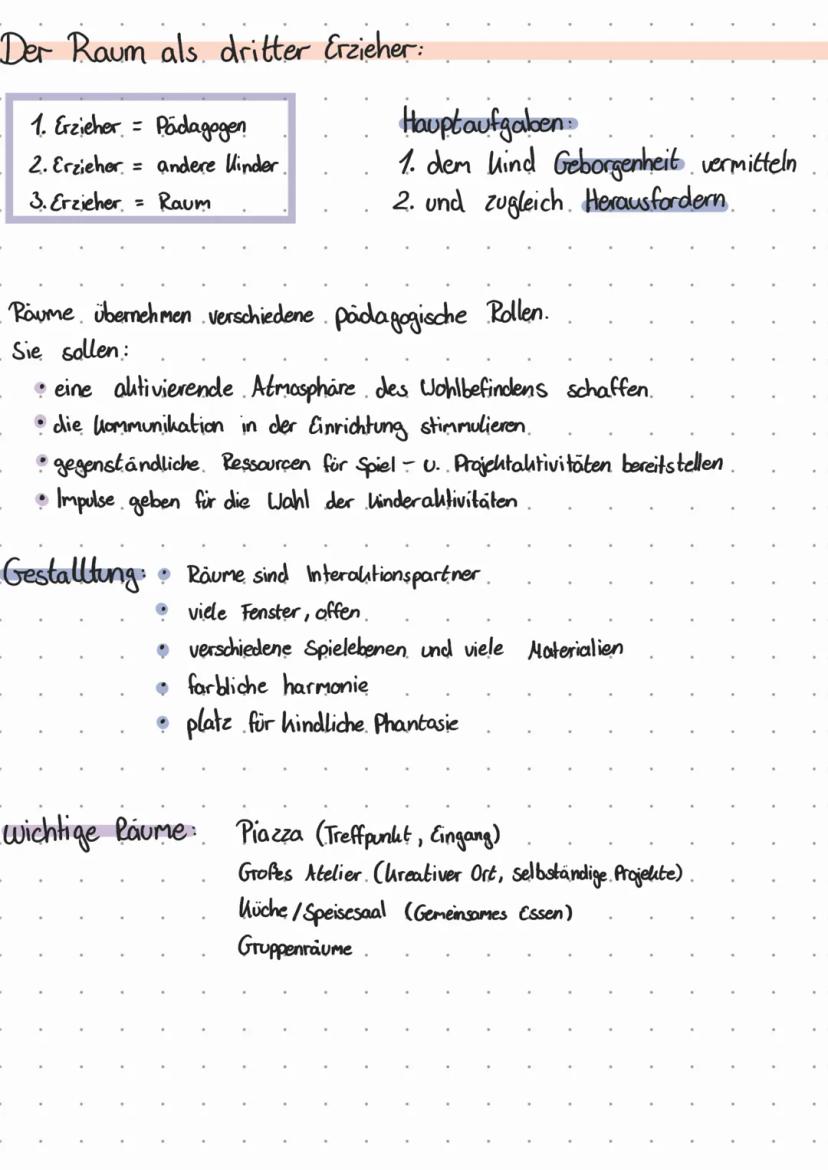 Der Raum als dritter Erzieher:
1. Erzieher = Pädagogen
2. Erzieher = andere Kinder
3. Erzieher = Raum
Hauptaufgaben:
1. dem Kind Geborgenheit vermitteln
2. und zugleich Herausfordern
Räume übernehmen verschiedene pädagogische Rollen.
Sie sollen:
• eine aktivierende Atmosphäre des Wohlbefindens schaffen
• die Kommunikation in der Einrichtung stimmulieren
• gegenständliche Ressourcen für Spiel- u. Projektaktivitäten bereitstellen
• Impulse geben für die Wahl der Kinderaktivitäten
Gestalltung: • Räume sind Interaktionspartner
• viele Fenster, offen
• verschiedene Spielebenen und viele Materialien
• farbliche harmonie
• platz für kindliche Phantasie
wichtige Räume: Piazza (Treffpunkt, Eingang)
Großes Atelier (kreativer Ort, selbständige Projekte)
Küche/Speisesaal (Gemeinsames Essen)
Gruppenräume